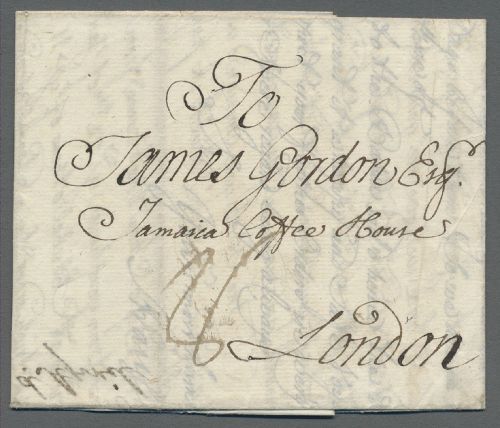 To
James Gordon Esqr.
Jamaica Coffee House
London